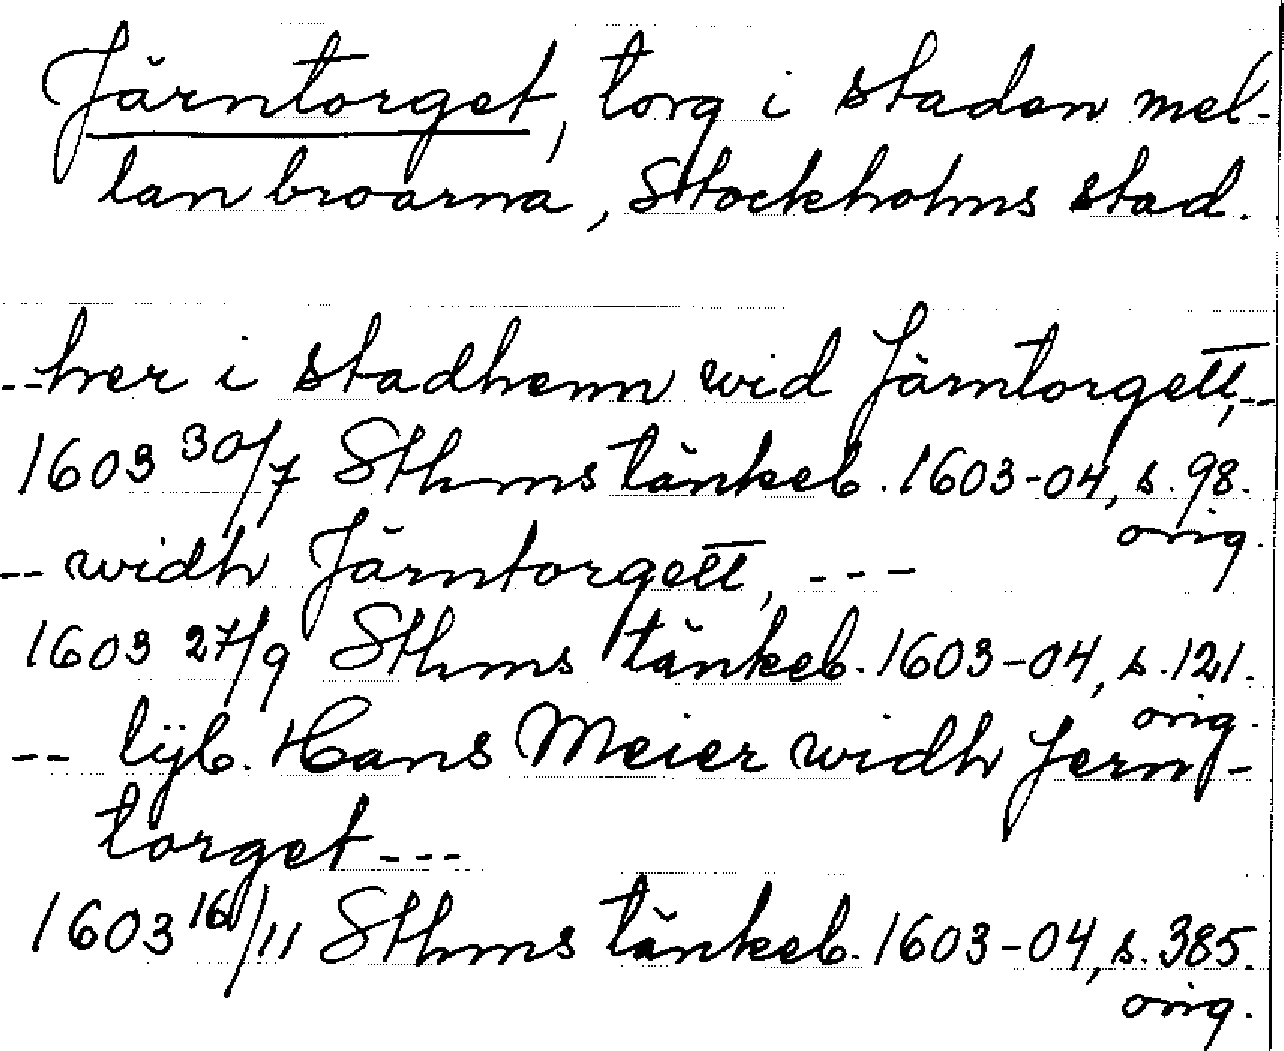 Järntorget, torg i staden mel-
lan broarna, Stockholms stad.
--her i stadhenn wid Järntorgett,--
1603 30/7 Sthms tänkeb. 1603-04, s. 98.
orig.
-- widh Järntorgett, ---
1603 27/9 Sthms tänkeb. 1603-04, s. 121.
orig.
-- lÿb. Hans Meier widh Jern-
torget ---
1603 16/11 Sthms tänkeb. 1603-04, s. 385.
orig.